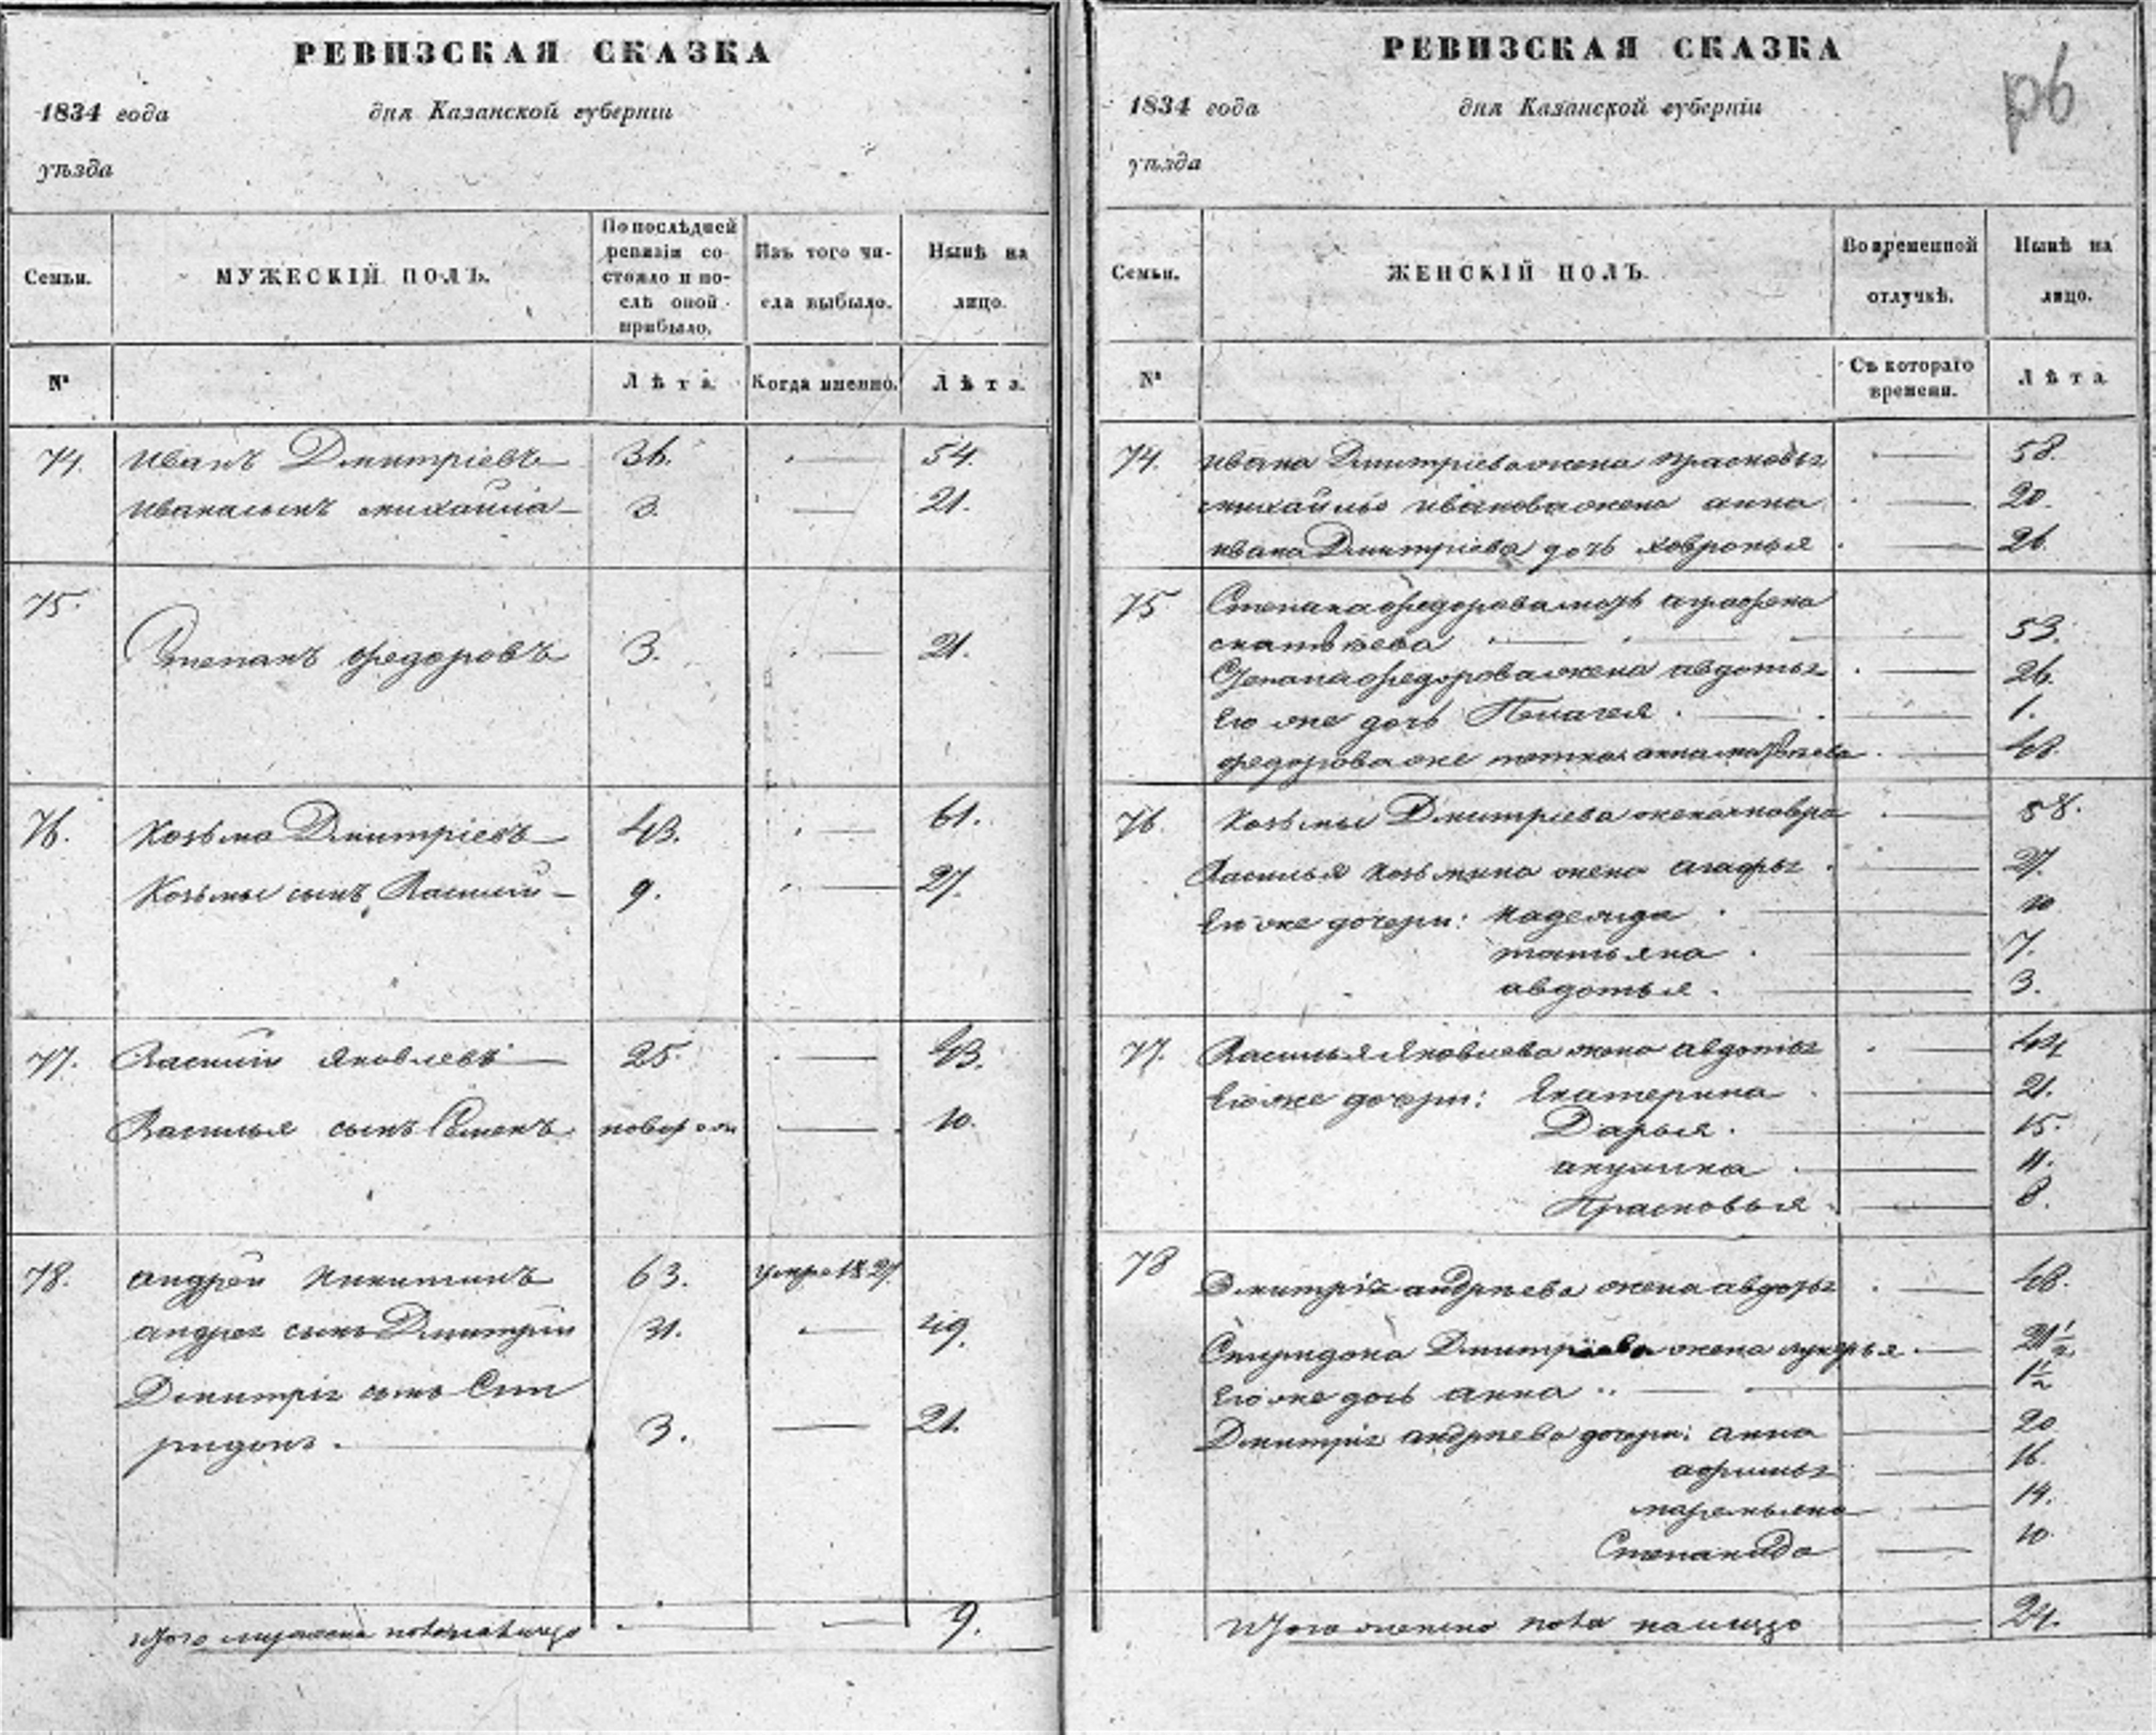 РЕВИЗСКАЯ СКАЗКА
1834 года дня Казанской губерніи
уѣзда
Семьи. МУЖЕСКІЙ ПОЛЪ. По послѣдней ревизіи состояло и послѣ оной прибыло. Изъ того числа выбыло. Нынѣ на лицо.
№ Лѣта. Когда именно. Лѣта.
74. Иванъ Дмитріевъ 36. — 54.
Ивана сынъ михайла 3. — 21.
75. Степанъ федоровъ 3. — 21.
76. Козьма Дмитріевъ 43. — 61.
Козьмы сынъ Василий 9. — 27.
77. Василий яковлевъ 25. — 43.
Василья сынъ Семенъ новорож — 10.
78. андрей никитинъ 63. умре 1827
андрея сынъ Дмитрий 31. — 49.
Дмитрія сынъ Спи
ридонъ. 3. — 21.
Итого мужеска пола налицо — 9.
РЕВИЗСКАЯ СКАЗКА
1834 года дня Казанской губерніи
уѣзда
Семьи. ЖЕНСКІЙ ПОЛЪ. Во временной отлучкѣ. Нынѣ на лицо.
№ Съ котораго времени. Лѣта.
74. ивана Дмитріева жена прасковья — 58.
михайлы иванова жена анна — 20.
ивана Дмитріева дочь ховронья — 26.
75 Степана федорова мать аграфена
53.
Степана федорова жена авдотья — 26.
Его же дочь Пелагея — 1.
федорова же тетка анна — 48.
76. Козьмы Дмитріева жена мавра — 58.
Василья козьмина жена агафья — 27.
Его же дочери: надежда — 10
татьяна — 7.
авдотья — 3.
77. Василья яковлева жена авдотья — 44
Его же дочери: Екатерина — 21.
Дарья — 15.
акулина — 11.
Прасковья — 8.
78 Дмитрія андреева жена авдотья — 48.
Спиридона Дмитріева жена лукерья — 21½
Его же дочь анна — 1½
Дмитрія андреева дочери: анна — 20
афимья — 16.
маремьяна — 14.
Степанида — 10
Итого женска пола налицо — 24.